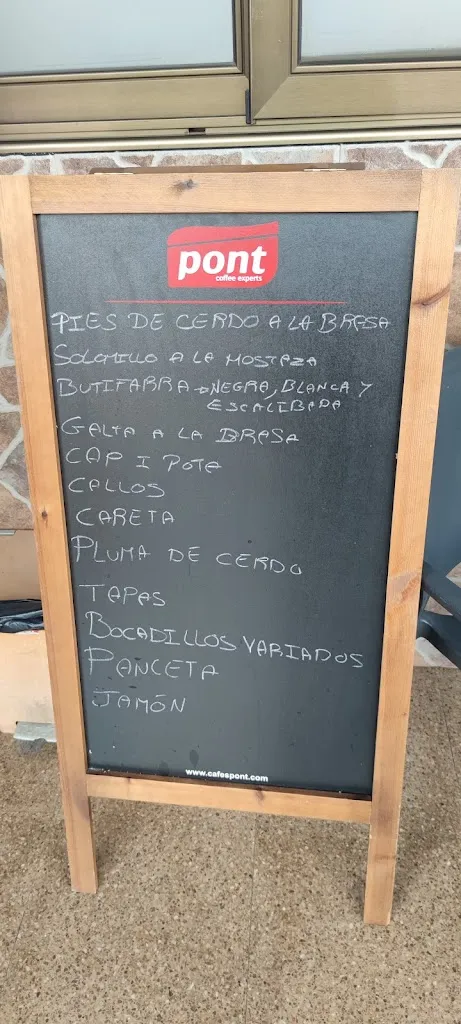 pont
coffee experts
PIES DE CERDO A LA BRASA
SOLOMILLO A LA MOSTAZA
BUTIFARRA → NEGRA, BLANCA Y
ESCALIBADA
GALTA A LA BRASA
CAP I POTA
CALLOS
CARETA
PLUMA DE CERDO
TAPAS
BOCADILLOS VARIADOS
PANCETA
JAMÓN
www.cafespont.com